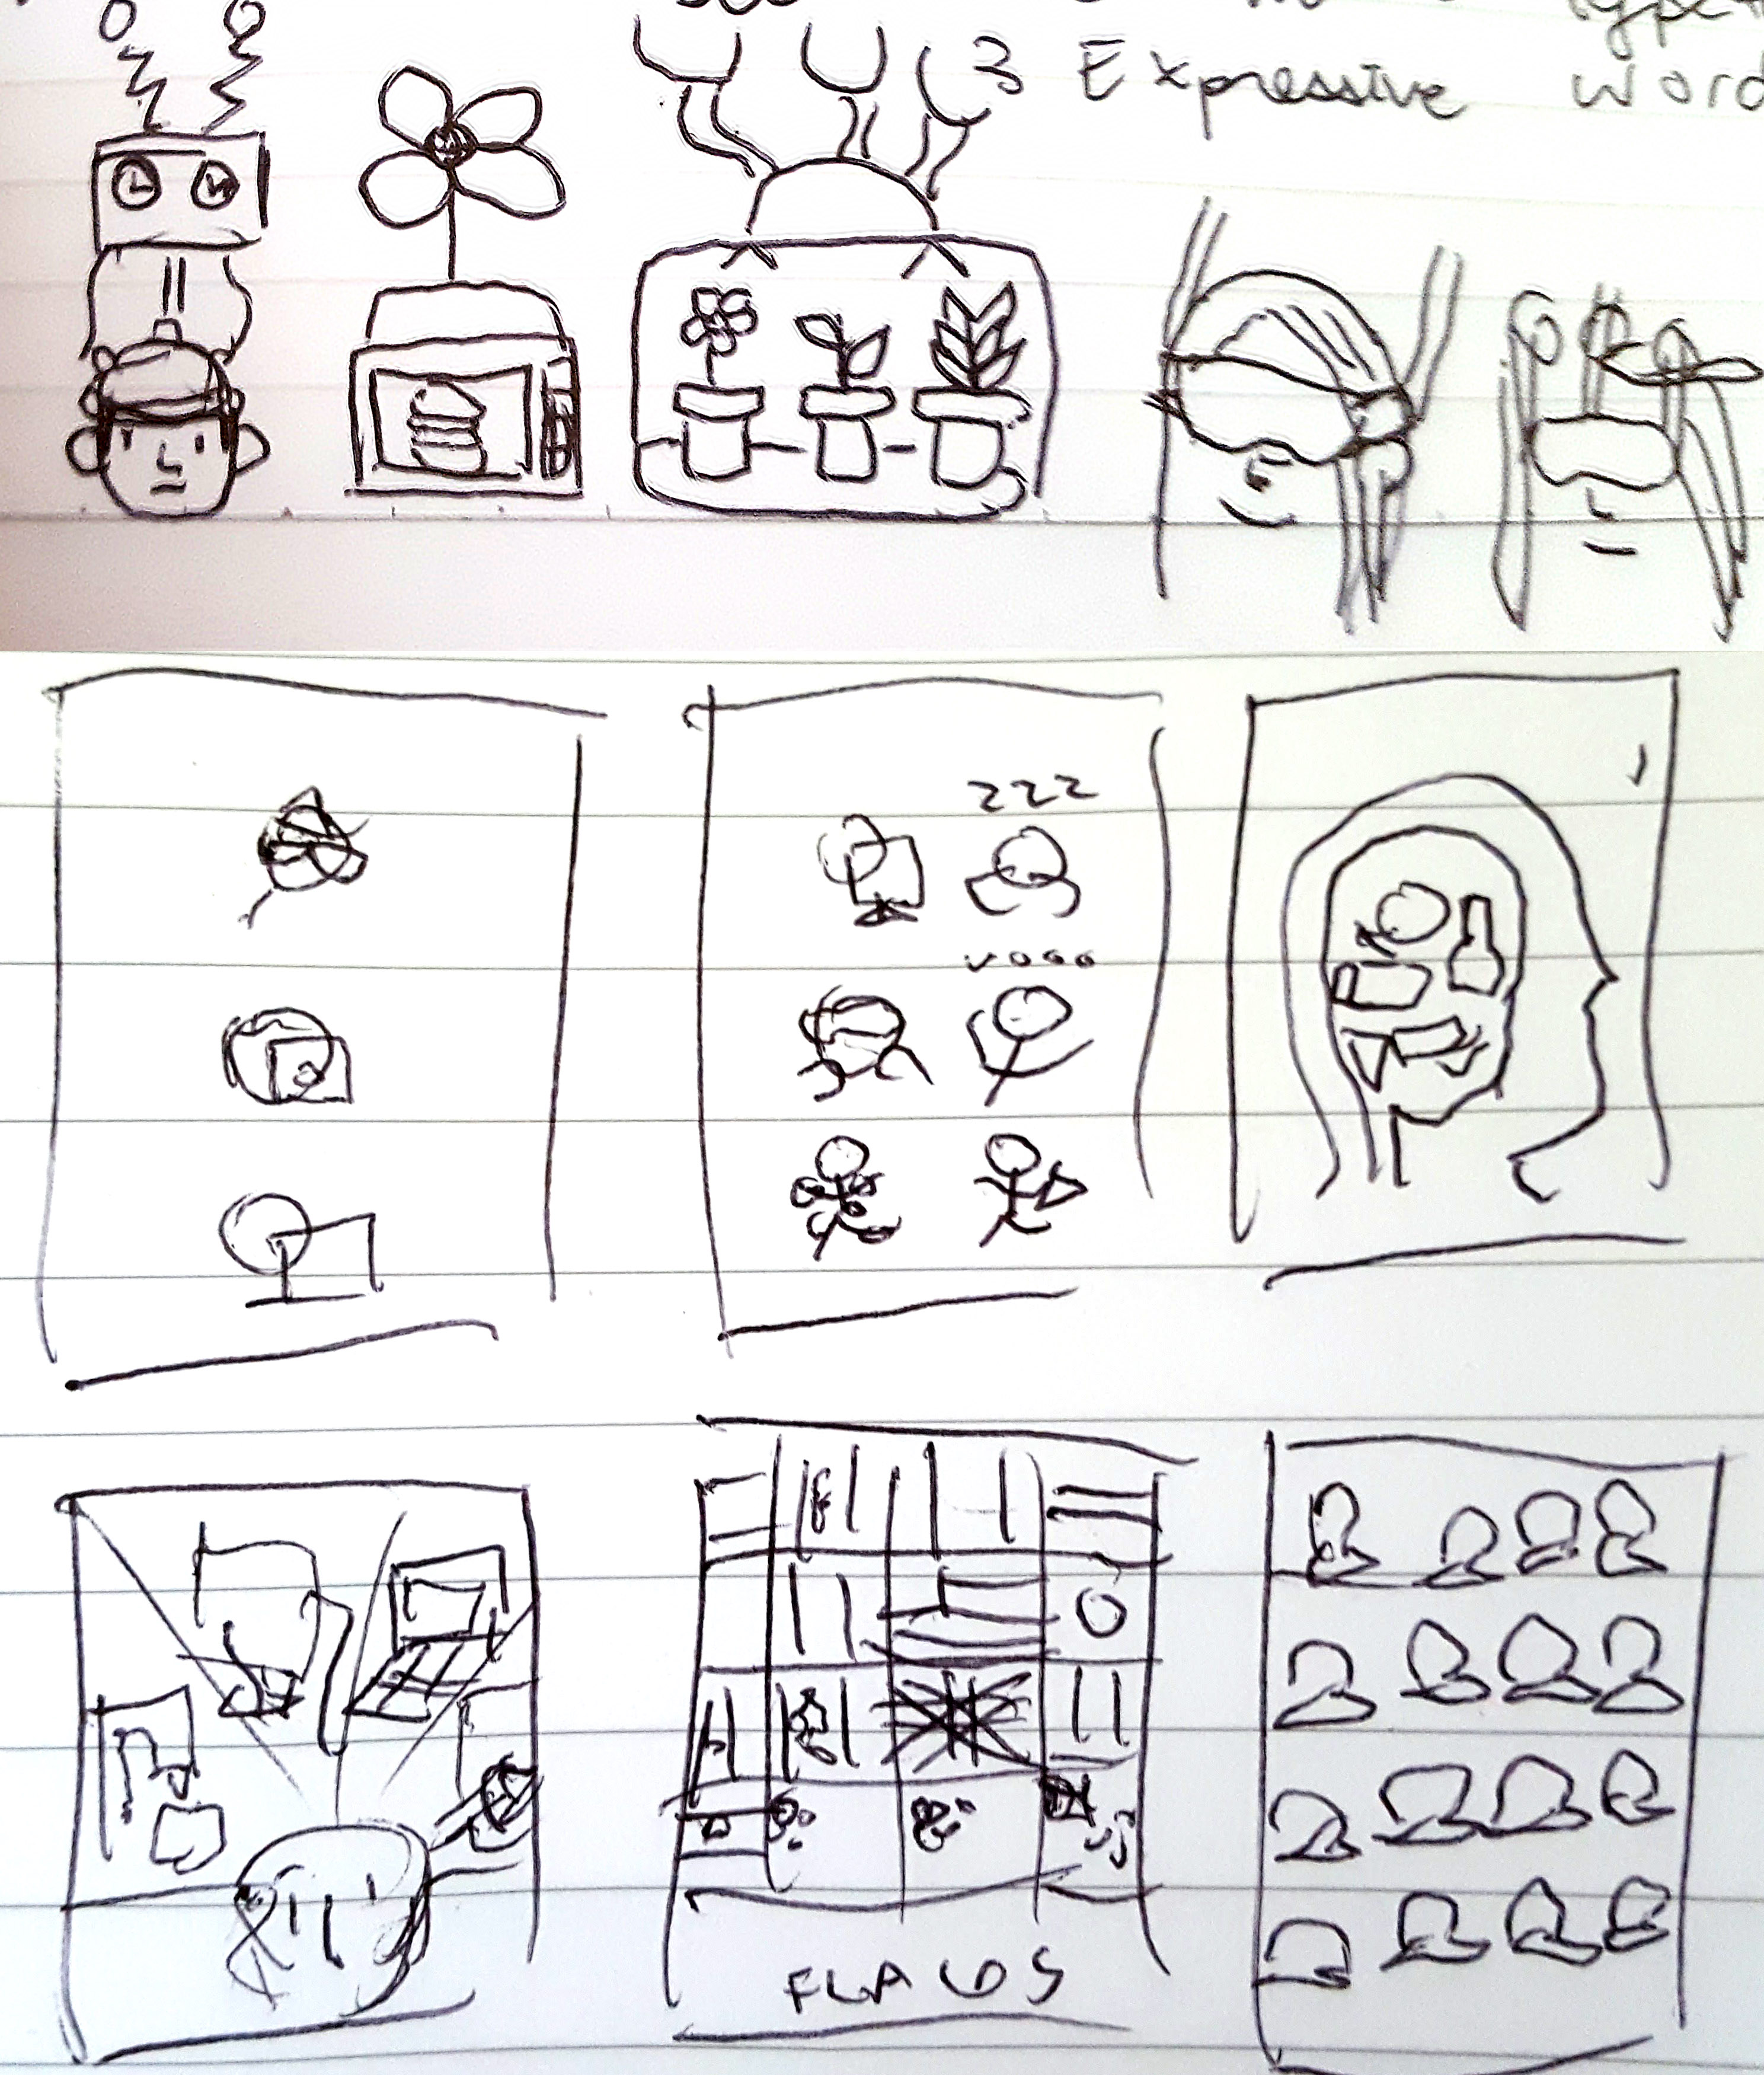 3 Expressive Word
zzz
FLAGS